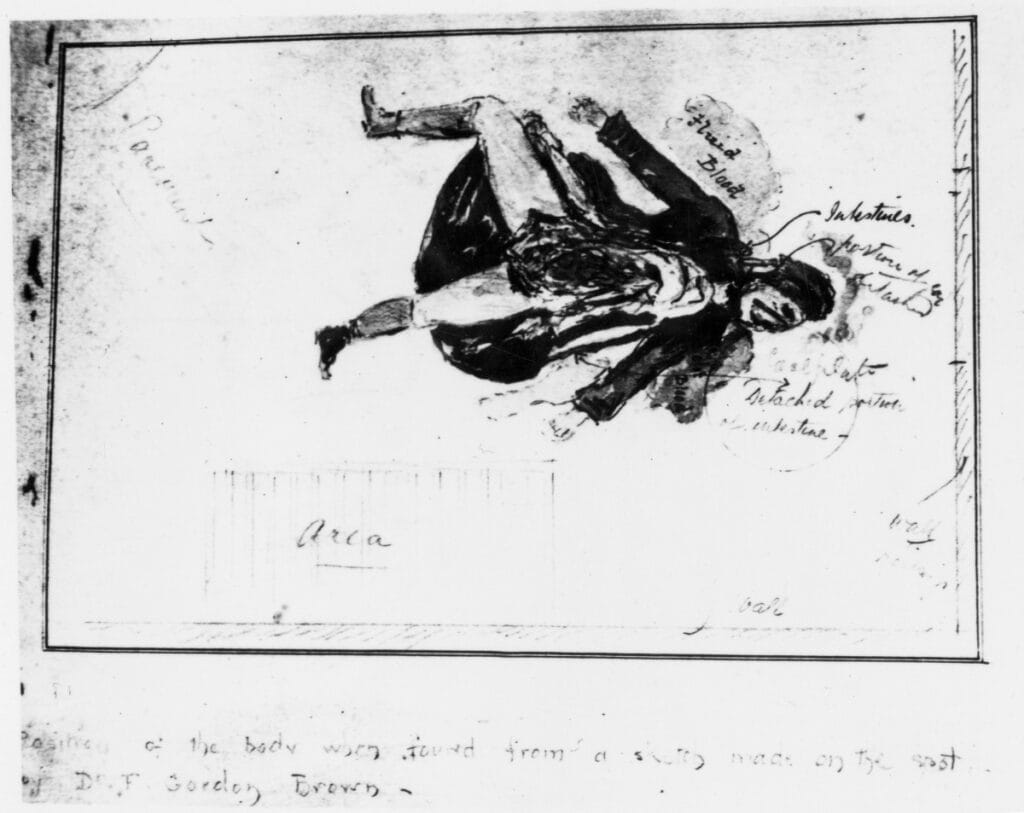 Pavement
Fluid
Blood
Intestines.
portion of
Detached portion
of intestine -
Area
wall
wall
Position of the body when found from a sketch made on the spot
by Dr. F. Gordon Brown -